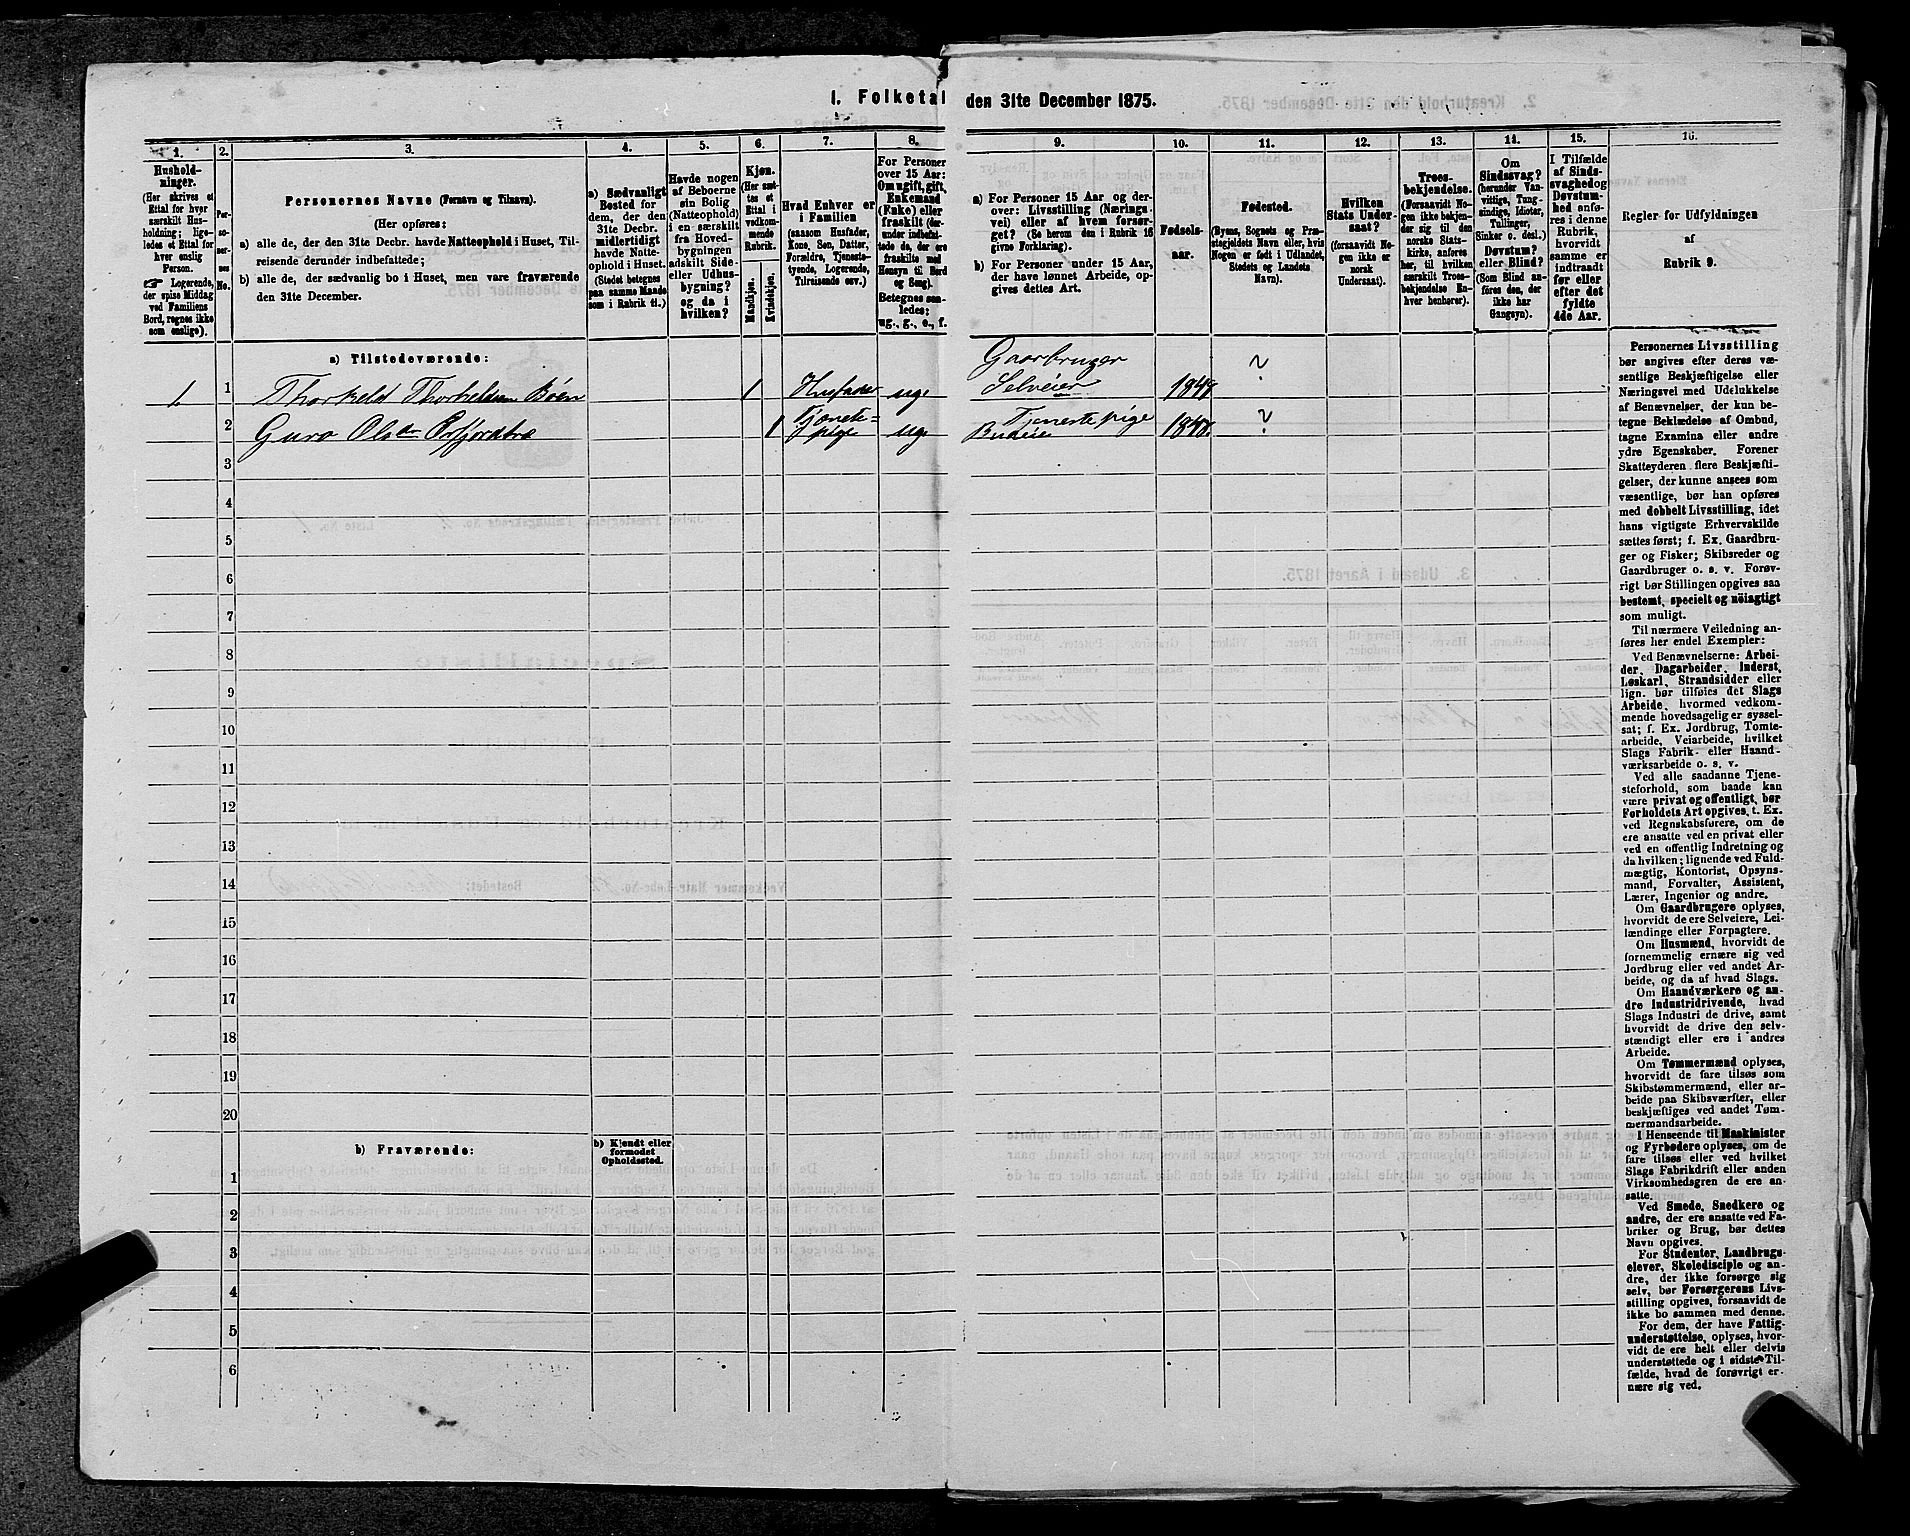 1. Folketal den 31te December 1875.
1. 2. 3. 4. 5. 6. 7. 8. 9. 10. 11. 12. 13. 14. 15. 16.
Hushold-
ninger.
(Her skrives et
Ettal for hver
særskilt Hus-
holdning; lige-
ledes et Ettal for
hver enslig
Person.
☞ Logerende,
der spise Middag
ved Familiens
Bord, regnes ikke
som enslige).
Per-
so-
ner-
nes
No.
Personernes Navne (Fornavn og Tilnavn).
(Her opføres:
a) alle de, der den 31te Decbr. havde Natteophold i Huset, Til-
reisende derunder indbefattede;
b) alle de, der sædvanlig bo i Huset, men vare fraværende
den 31te December.
a) Sædvanligt
Bosted for
dem, der den
31te Decbr.
midlertidigt
havde Natte-
ophold i Huset.
(Stedet betegnes
paa samme Maade
som i Rubrik 11.)
Havde nogen
af Beboerne
sin Bolig
(Natteophold)
i en særskilt
fra Hoved-
bygningen
adskilt Side-
eller Udhus-
bygning?
og da i
hvilken?
Kjøn.
(Her sæt-
tes et
Ettal i
vedkom-
mende
Rubrik.
Mandkjøn.
Kvindekjøn.
Hvad Enhver er
i Familien
(saasom Husfader,
Kone, Søn, Datter,
Forældre, Tjeneste-
tyende, Logerende,
Tilreisende osv.)
For Personer
over 15 Aar:
Om ugift, gift,
Enkemand
(Enke) eller
fraskilt (der-
under indbefat-
tede de, der ere
fraskilte med
Hensyn til Bord
og Seng).
Betegnes saa-
ledes:
ug., g., e., f.
a) For Personer 15 Aar og der-
over: Livsstilling (Nærings-
vei) eller af hvem forsør-
get? (Se herom den i Rubrik 16
givne Forklaring).
b) For Personer under 15 Aar,
der have lønnet Arbeide, op-
gives dettes Art.
Fødsels-
aar.
Fødested.
(Byens, Sognets og Præ-
stegjeldets Navn eller, hvis
Nogen er født i Udlandet,
Stedets og Landets
Navn).
Hvilken
Stats Under-
saat?
(forsaavidt No-
gen ikke er
norsk
Undersaat).
Troes-
bekjendelse.
(Forsaavidt No-
gen ikke bekjen-
der sig til den
norske Stats-
kirke, anføres
her, til hvilken
særskilt Troes-
bekjendelse En-
hver henhører).
Om
Sindssvag?
(herunder Van-
vittige, Tung-
sindige, Idioter,
Tullinger,
Sinker o. desl.)
Døvstum?
eller Blind?
(Som Blind an-
føres den, der
ikke har
Gangsyn).
I Tilfælde
af Sinds-
svaghed og
Døvstum-
hed anfø-
res i denne
Rubrik,
hvorvidt
samme er
indtraadt
før eller
efter det
fyldte
4de Aar.
Regler for Udfyldningen
af
Rubrik 9.
a) Tilstedeværende:
Gaarbruger
1 1 Thorkeld Thorkeldsen Bøen 1 Husfader ug. Selveier 1848 ?
2 Guro Olsdr 1 Tjeneste-
pige ug. Tjenestepige
Budeie 1848. ?
3
4
5
6
7
8
9
10
11
12
13
14
15
16
17
18
19
20
b) Fraværende:
b) Kjendt eller
formodet
Opholdssted.
1
2
3
4
5
6
Personernes Livsstilling
bør angives efter deres væ-
sentlige Beskjæftigelse eller
Næringsvei med Udelukkelse
af Benævnelser, der kun be-
tegne Beklædelse af Ombud,
tagne Examina eller andre
ydre Egenskaber. Forener
Skatteyderen flere Beskjæfti-
gelser, der kunne ansees som
væsentlige, bør han opføres
med dobbelt Livsstilling, idet
hans vigtigste Erhvervskilde
sættes først; f. Ex. Gaardbru-
ger og Fisker; Skibsreder og
Gaardbruger o. s. v. Forøv-
rigt bør Stillingen opgives saa
bestemt, specielt og nöiagtigt
som muligt.
Til nærmere Veiledning an-
føres her endel Exempler:
Ved Benævnelserne: Arbei-
der, Dagarbeider, Inderst,
Løskarl, Strandsidder eller
lign. bør tilføies det Slags
Arbeide, hvormed vedkom-
mende hovedsagelig er syssel-
sat; f. Ex. Jordbrug, Tomte-
arbeide, Veiarbeide, hvilket
Slags Fabrik- eller Haand-
værksarbeide o. s. v.
Ved alle saadanne Tjene-
steforhold, som baade kan
være privat og offentligt, bør
Forholdets Art opgives, t. Ex.
ved Regnskabsførere, om de
ere ansatte ved en privat eller
ved en offentlig Indretning og
da hvilken; lignende ved Fuld-
mægtig, Kontorist, Opsyns-
mand, Forvalter, Assistent,
Lærer, Ingeniør og andre.
Om Gaardbrugere oplyses,
hvorvidt de ere Selveiere, Lei-
lændinge eller Forpagtere.
Om Husmænd, hvorvidt de
fornemmelig ernære sig ved
Jordbrug eller ved andet Ar-
beide, og da af hvad Slags.
Om Haandværkere og an-
dre Industridrivende, hvad
Slags Industri de drive, samt
hvorvidt de drive den selv-
stændigt eller ere i andres
Arbeide.
Om Tømmermænd oplyses,
hvorvidt de fare tilsøs som
Skibstømmermænd, eller ar-
beide paa Skibsværfter, eller
beskjæftiges ved andet Tøm-
mermandsarbeide.
I Henseende til Maskinister
og Fyrbødere oplyses, om de
fare tilsøs eller ved hvilket
Slags Fabrikdrift eller anden
Virksomhedsgren de ere an-
satte.
Ved Smede, Snedkere og
andre, der ere ansatte ved Fa-
briker og Brug, bør dettes
Navn opgives.
For Studenter, Landbrugs-
elever, Skoledisciple og an-
dre, der ikke forsørge sig
selv, bør Forsørgerens Livs-
stilling opgives, forsaavidt de
ikke bo sammen med denne.
For dem, der have Fattig-
understøttelse, oplyses, hvor-
vidt de ere helt eller delvis
understøttede og i sidste Til-
fælde, hvad de forøvrigt er-
nære sig ved.